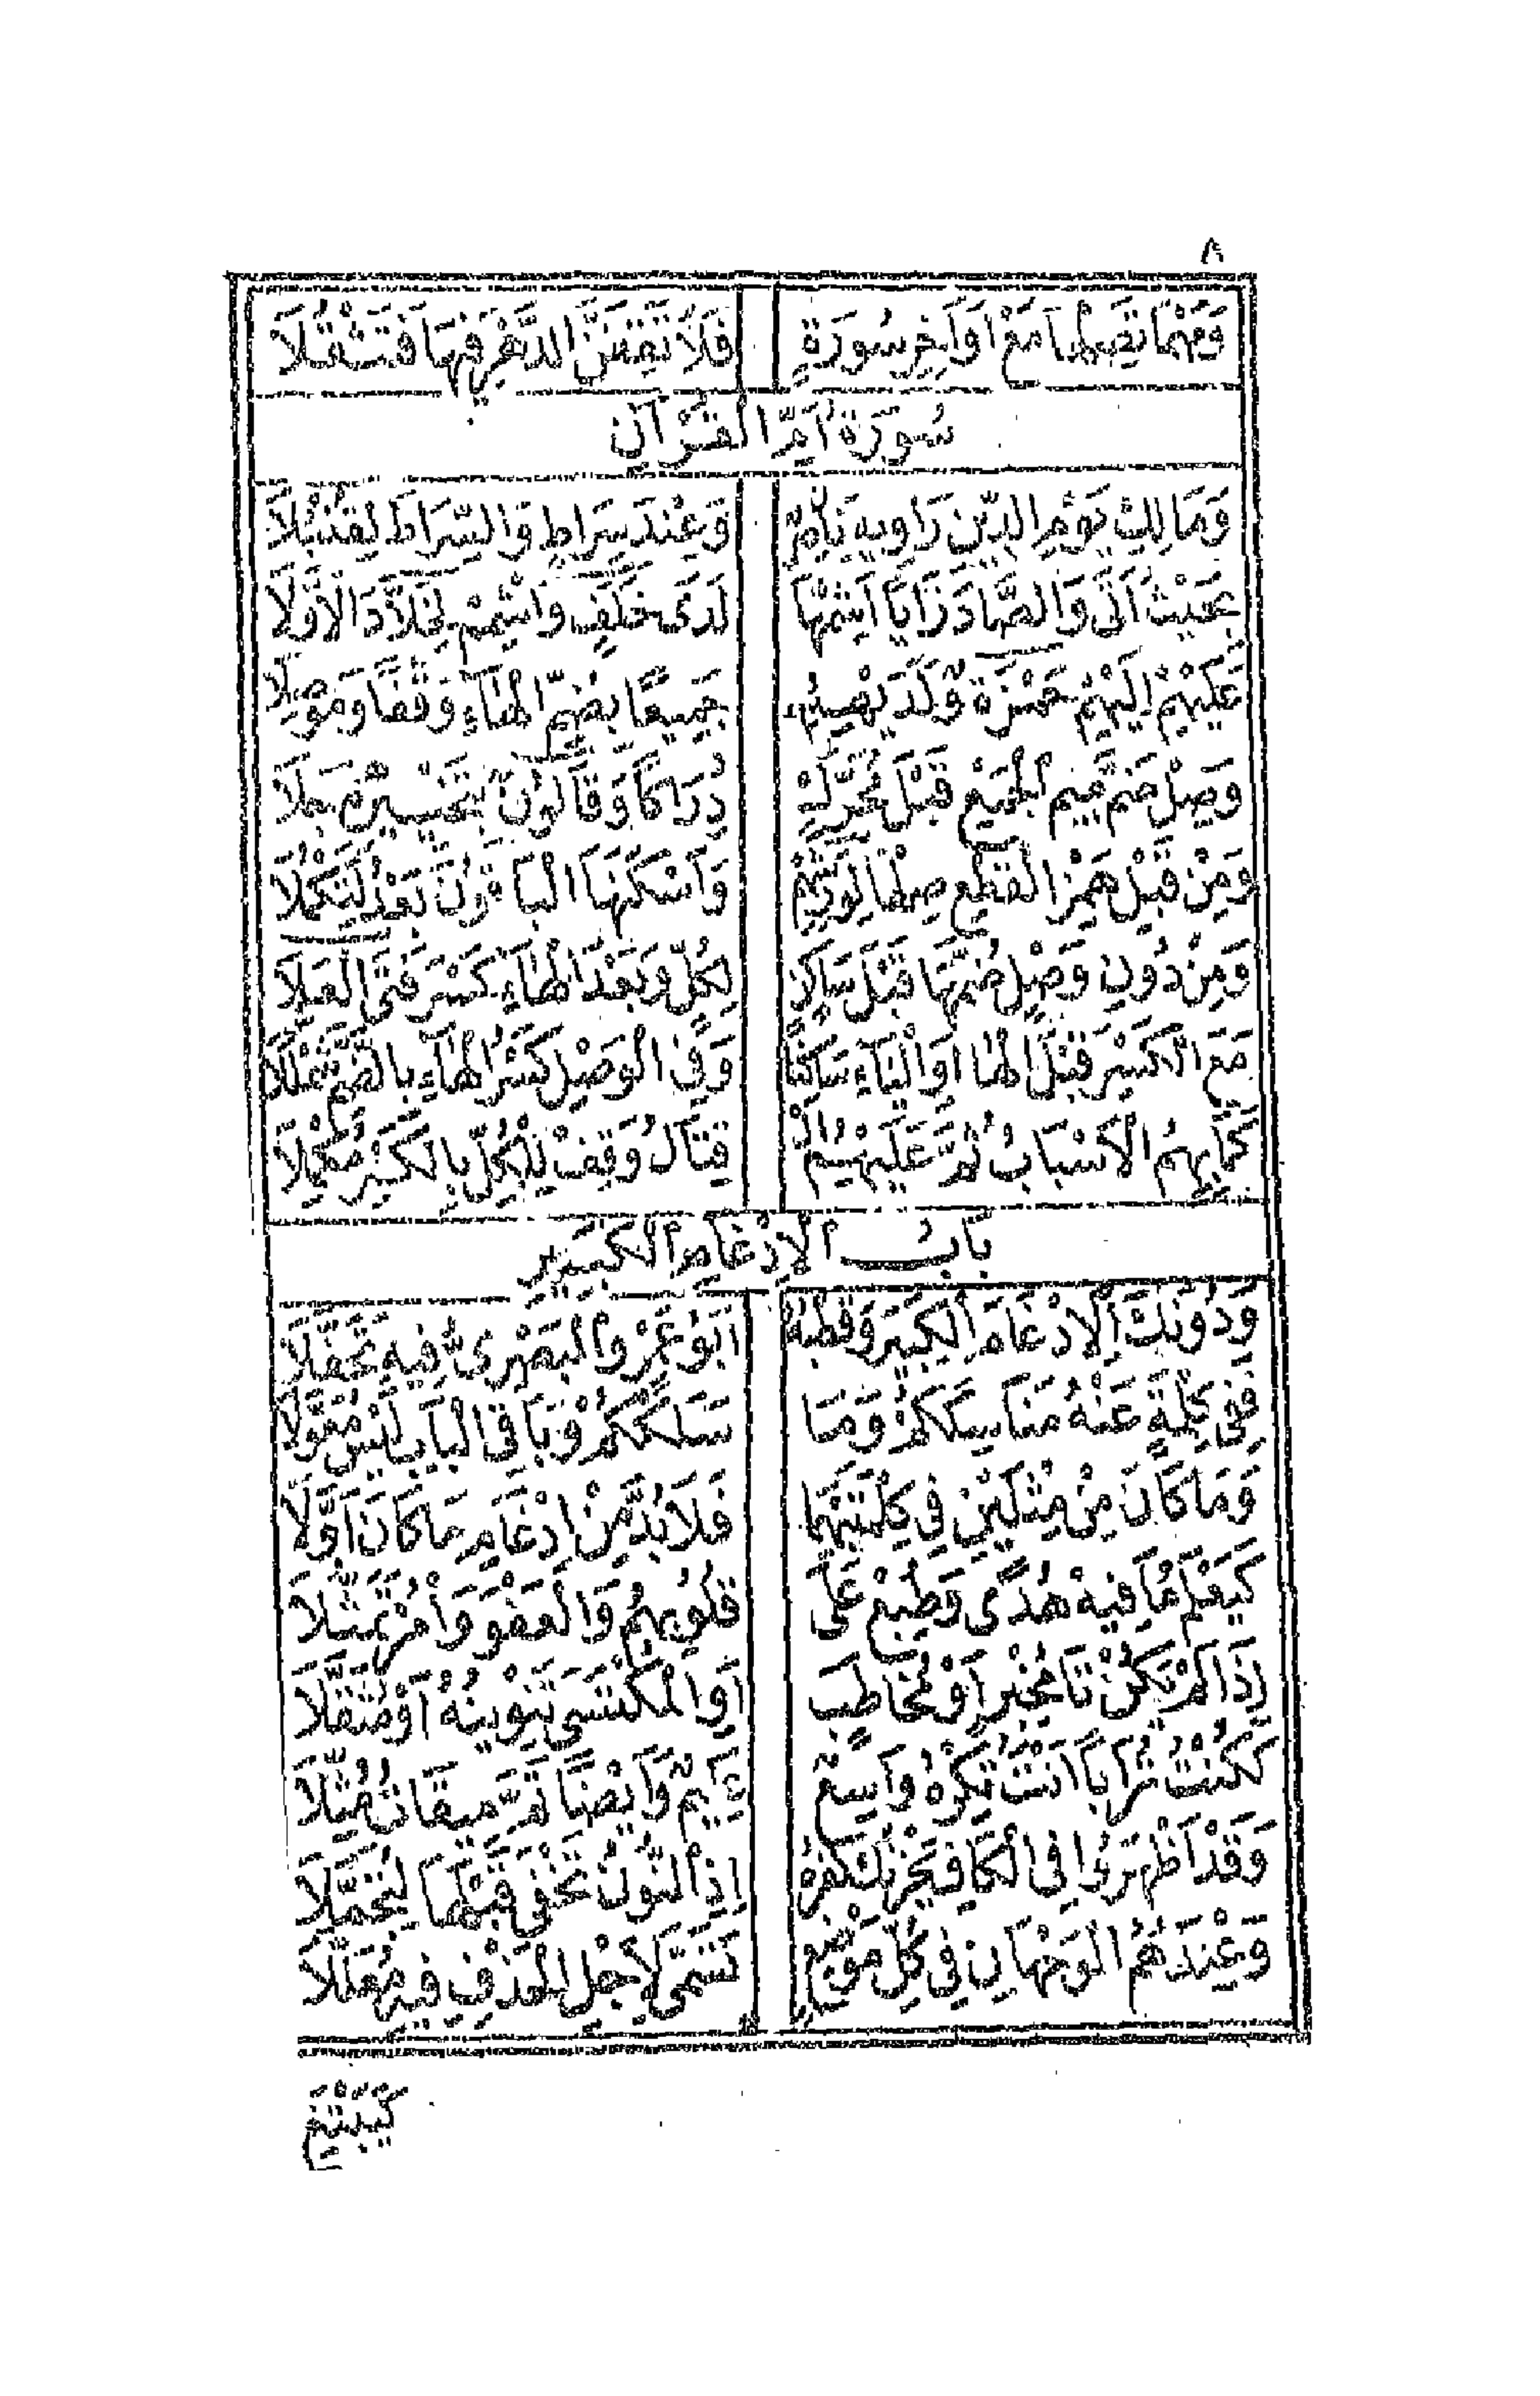 ٨
وَمَهْمَا تَصِلْهَا مَعْ أَوَاخِرِ سُورَةٍ فَلَا تَقِفَنَّ الدَّهْرَ فِيهَا فَتَثْقُلَا
سُورَةُ أُمِّ الْقُرْآنِ
وَمَالِكِ يَوْمِ الدِّينِ رَاوِيهِ نَاصِرٌ وَعِنْدَ سِرَاطٍ وَالسِّرَاطَ لِقُنْبُلَا
بِحَيْثُ أَتَى وَالصَّادَ زَايًا أَشِمَّهَا لَدَى خَلَفٍ وَاشْمِمْ لِخَلَّادَ الْأَوَّلَا
عَلَيْهِمْ إِلَيْهِمْ حَمْزَةٌ وَلَدَيْهِمُ جَمِيعًا بِضَمِّ الْهَاءِ وَقْفًا وَمَوْصِلَا
وَصِلْ ضَمَّ مِيمِ الْجَمْعِ قَبْلَ مُحَرَّكٍ دِرَاكًا وَقَالُونٌ بِتَخْيِيرِهِ جَلَا
وَمِنْ قَبْلِ هَمْزِ الْقَطْعِ صِلْهَا لِوَرْشِهِمْ وَأَسْكَنَهَا الْبَاقُونَ بَعْدُ لِتَكْمُلَا
وَمِنْ دُونِ وَصْلٍ ضُمَّهَا قَبْلَ سَاكِنٍ لِكُلٍّ وَبَعْدَ الْهَاءِ كَسْرُ فَتَى الْعَلَا
مَعَ الْكَسْرِ قَبْلَ الْهَا أَوِ الْيَاءِ سَاكِنًا وَفِي الْوَصْلِ كَسْرُ الْهَاءِ بِالضَّمِّ شَمْلَلَا
كَمَا بِهِمُ الْأَسْبَابُ ثُمَّ عَلَيْهِمُ الْ قِتَالُ وَقِفْ لِلْكُلِّ بِالْكَسْرِ مُكْمِلَا
بَابُ الْإِدْغَامِ الْكَبِيرِ
وَدُونَكَ الْإِدْغَامَ الْكَبِيرَ وَقُطْبُهُ أَبُو عَمْرٍو الْبَصْرِيُّ فِيهِ تَحَفَّلَا
فَفِي كِلْمَةٍ عَنْهُ مَنَاسِكَكُمْ وَمَا سَلَكَكُمْ وَبَاقِي الْبَابِ لَيْسَ مُعَوَّلَا
وَمَا كَانَ مِنْ مِثْلَيْنِ فِي كِلْمَتَيْهِمَا فَلَا بُدَّ مِنْ إِدْغَامِ مَا كَانَ أَوَّلَا
كَيَعْلَمُ مَا فِيهِ هُدًى وَطُبِعْ عَلَى قُلُوبِهِمُ وَالْعَفْوَ وَأْمُرْ تَمَثَّلَا
إِذَا لَمْ يَكُنْ تَا مُخْبِرٍ أَوْ مُخَاطَبٍ أَوِ الْمُكْتَسِي تَنْوِينُهُ أَوْ مُثَقَّلَا
كَكُنْتُ تُرَابًا أَنْتَ تُكْرِهُ وَاسِعٌ عَلِيمٌ وَأَيْضًا تَمَّ مِيقَاتُ مُثِّلَا
وَقَدْ أَظْهَرُوا فِي الْكَافِ يَحْزُنْكَ كُفْرُهُ إِذِ النُّونُ تُخْفَى قَبْلَهَا لِتُجَمَّلَا
وَعِنْدَهُمُ الْوَجْهَانِ فِي كُلِّ مَوْضِعٍ تَسَمَّى لِأَجْلِ الْحَذْفِ فِيهِ مُعَلَّلَا
كَيَبْتَغِ